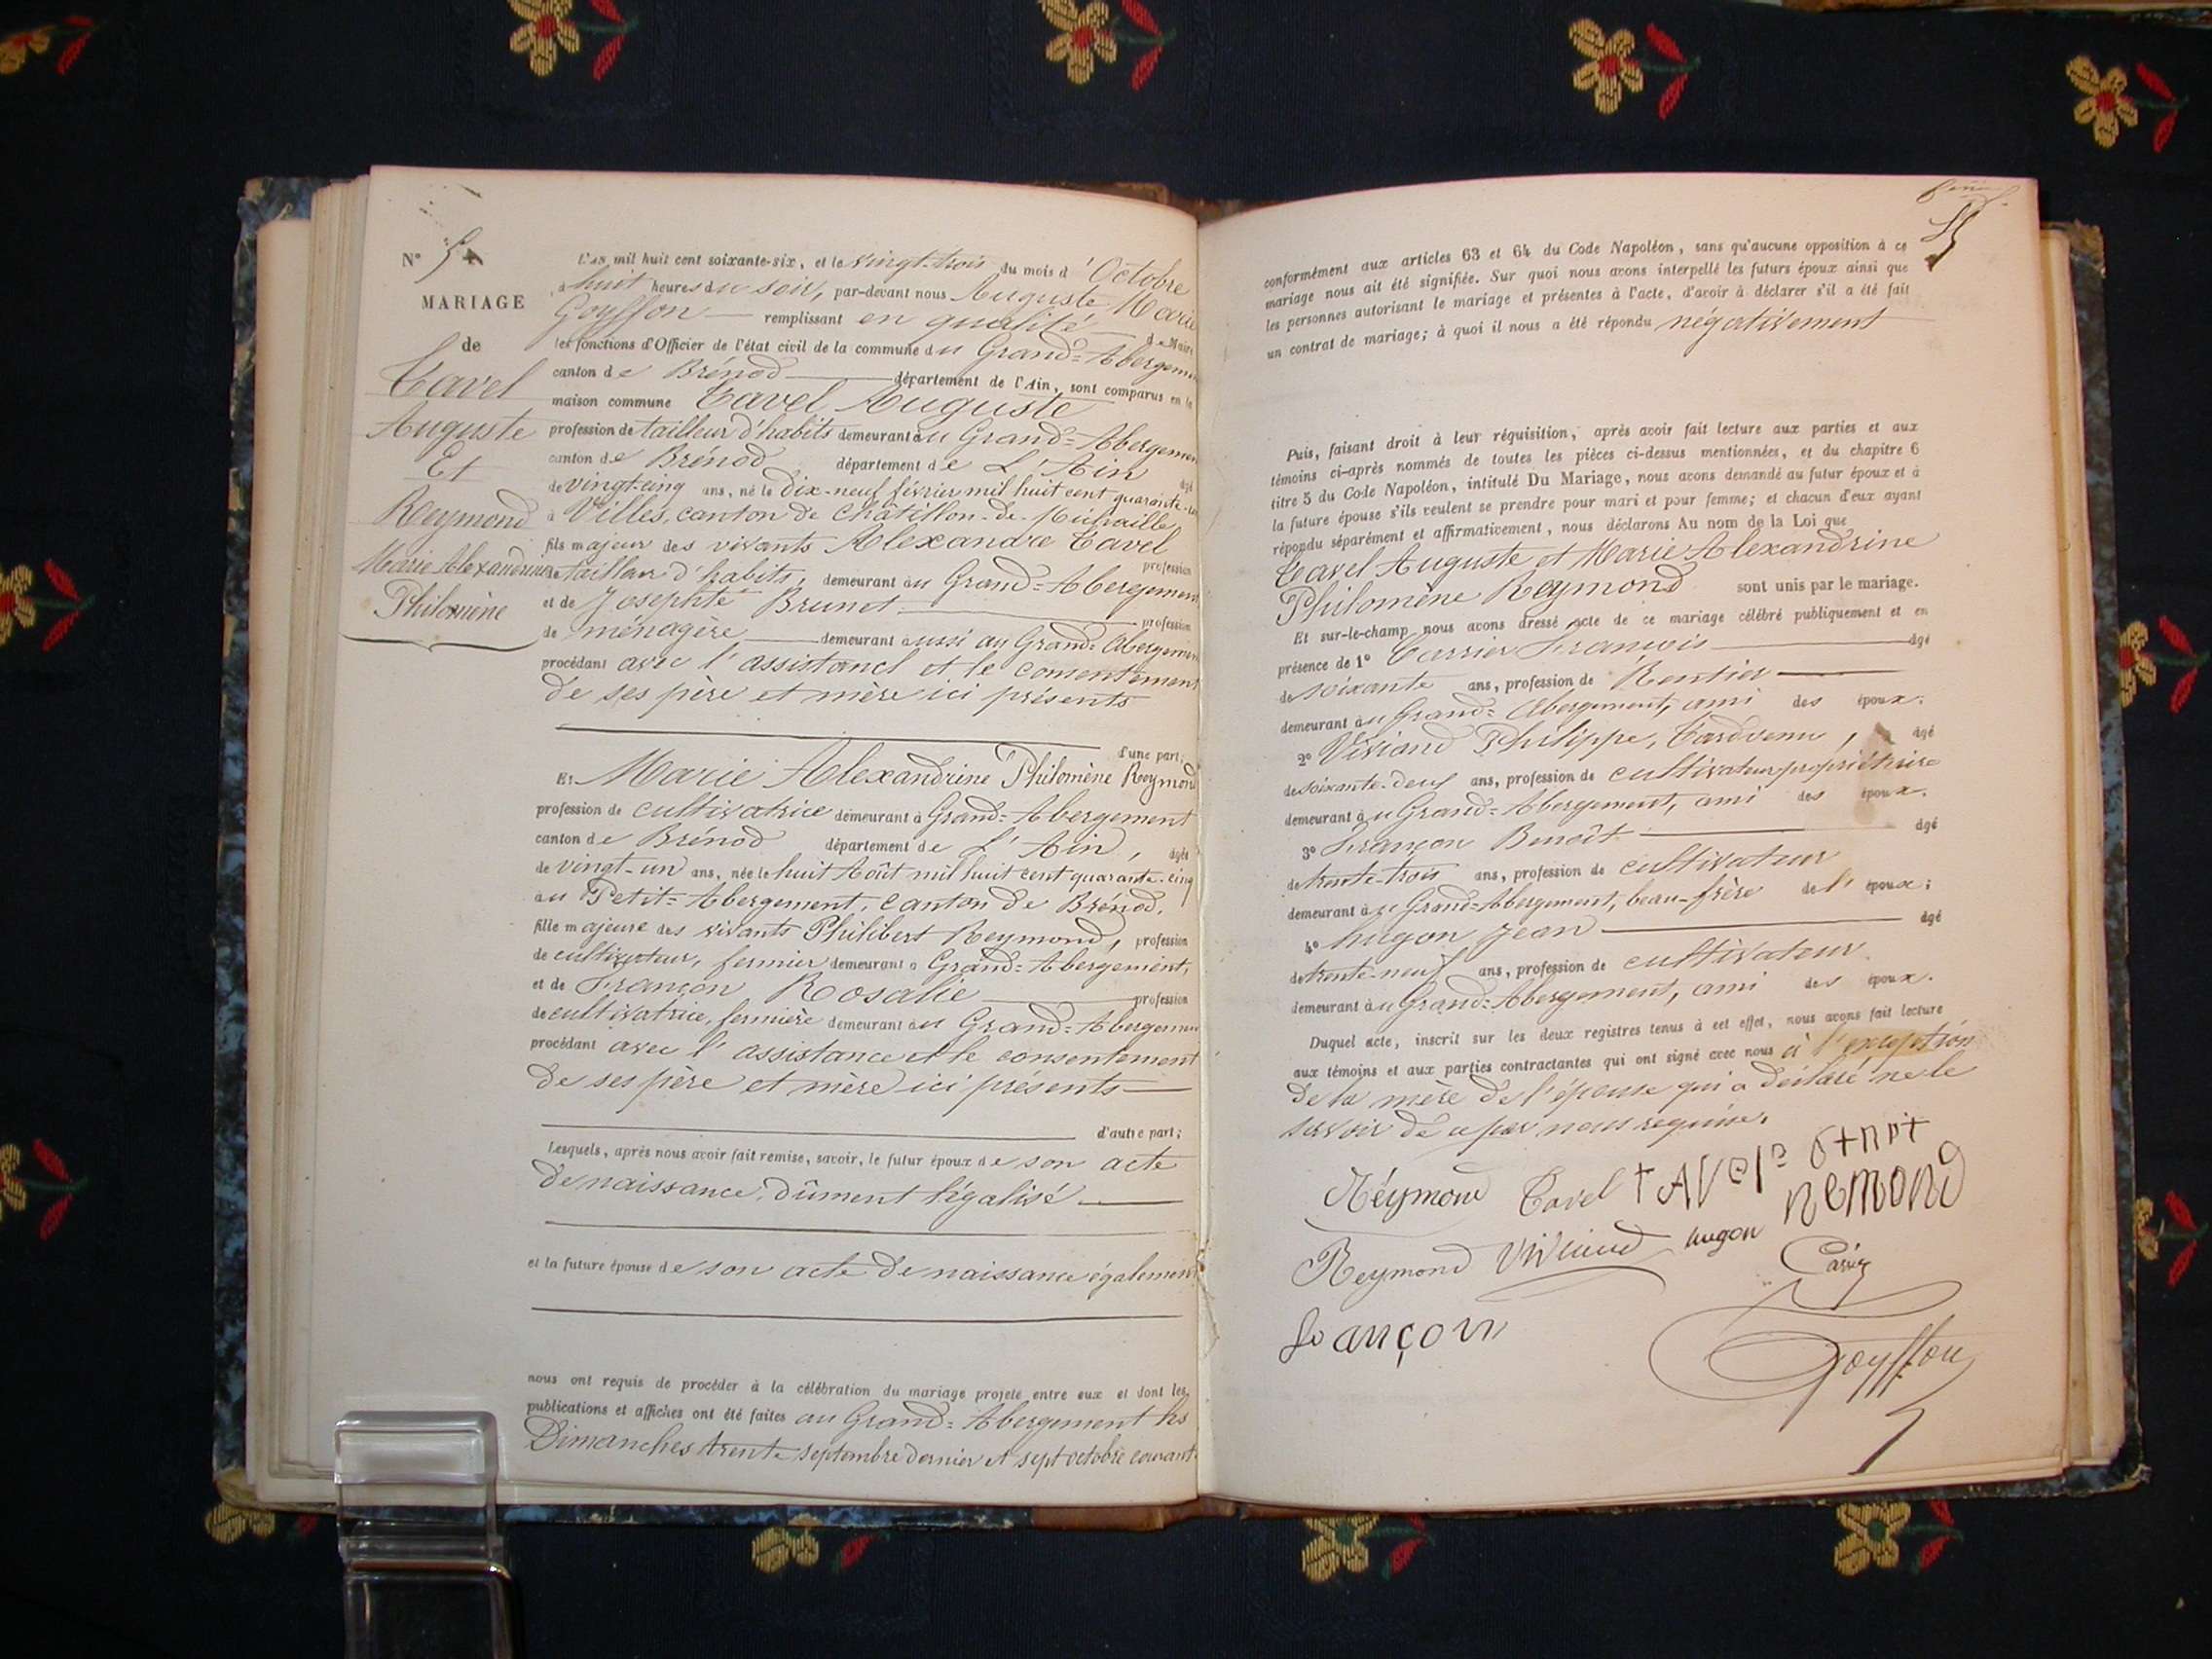 N° 5
MARIAGE
de
Tavel
Auguste
Et
Reymond
Marie Alexandrine
Philomène
L'an mil huit cent soixante-six, et le vingt-trois du mois d'Octobre
à huit heures du soir, par-devant nous Auguste Marie
Goyffon remplissant en qualité de Maire
les fonctions d'Officier de l'état civil de la commune du Grand-Abergement
canton de Brénod département de l'Ain, sont comparus en la
maison commune Tavel Auguste
profession de tailleur d'habits demeurant au Grand-Abergement
canton de Brénod département de L'Ain âgé
de vingt-cinq ans, né le dix-neuf février mil huit cent quarante-un
à Villes, canton de Châtillon-de-Michaille
fils majeur des vivants Alexandre Tavel profession
de tailleur d'habits, demeurant au Grand-Abergement
et de Josephte Brunet profession
de ménagère demeurant aussi au Grand-Abergement
procédant avec l'assistance et le consentement
de ses père et mère ici présents
d'une part;
Et Marie Alexandrine Philomène Reymond
profession de cultivatrice demeurant à Grand-Abergement
canton de Brénod département de L'Ain, âgée
de vingt-un ans, née le huit Août mil huit cent quarante-cinq
au Petit-Abergement, canton de Brénod,
fille majeure des vivants Philibert Reymond, profession
de cultivateur, fermier demeurant à Grand-Abergement,
et de Françon Rosalie profession
de cultivatrice, fermière demeurant au Grand-Abergement
procédant avec l'assistance et le consentement
de ses père et mère ici présents
d'autre part;
Lesquels, après nous avoir fait remise, savoir, le futur époux de son acte
de naissance, dûment légalisé
et la future épouse de son acte de naissance également
nous ont requis de procéder à la célébration du mariage projeté entre eux et dont les
publications et affiches ont été faites au Grand-Abergement les
Dimanches trente septembre dernier et sept octobre courant.
conformément aux articles 63 et 64 du Code Napoléon, sans qu'aucune opposition à ce
mariage nous ait été signifiée. Sur quoi nous avons interpellé les futurs époux ainsi que
les personnes autorisant le mariage et présentes à l'acte, d'avoir à déclarer s'il a été fait
un contrat de mariage; à quoi il nous a été répondu négativement
Puis, faisant droit à leur réquisition, après avoir fait lecture aux parties et aux
témoins ci-après nommés de toutes les pièces ci-dessus mentionnées, et du chapitre 6
titre 5 du Code Napoléon, intitulé Du Mariage, nous avons demandé au futur époux et à
la future épouse s'ils veulent se prendre pour mari et pour femme; et chacun d'eux ayant
répondu séparément et affirmativement, nous déclarons Au nom de la Loi que
Tavel Auguste et Marie Alexandrine
Philomène Reymond sont unis par le mariage.
Et sur-le-champ nous avons dressé acte de ce mariage célébré publiquement et en
présence de 1° Carrier François âgé
de soixante ans, profession de Rentier
demeurant au Grand-Abergement, ami des époux.
2° Viviand Philippe, Tardvenu, âgé
de soixante-deux ans, profession de cultivateur propriétaire
demeurant au Grand-Abergement, ami des époux.
3° Françon Benoît âgé
de trente-trois ans, profession de cultivateur
demeurant au Grand-Abergement, beau-frère de l'époux;
4° hugon Jean âgé
de trente-neuf ans, profession de cultivateur.
demeurant au Grand-Abergement, ami des époux.
Duquel acte, inscrit sur les deux registres tenus à cet effet, nous avons fait lecture
aux témoins et aux parties contractantes qui ont signé avec nous à l'exception
de la mère de l'épouse qui a déclaré ne le
savoir de ce par nous requise.
Réymond Tavel tAvel
Remond
Reymond Viviand hugon
françon
Goyffon